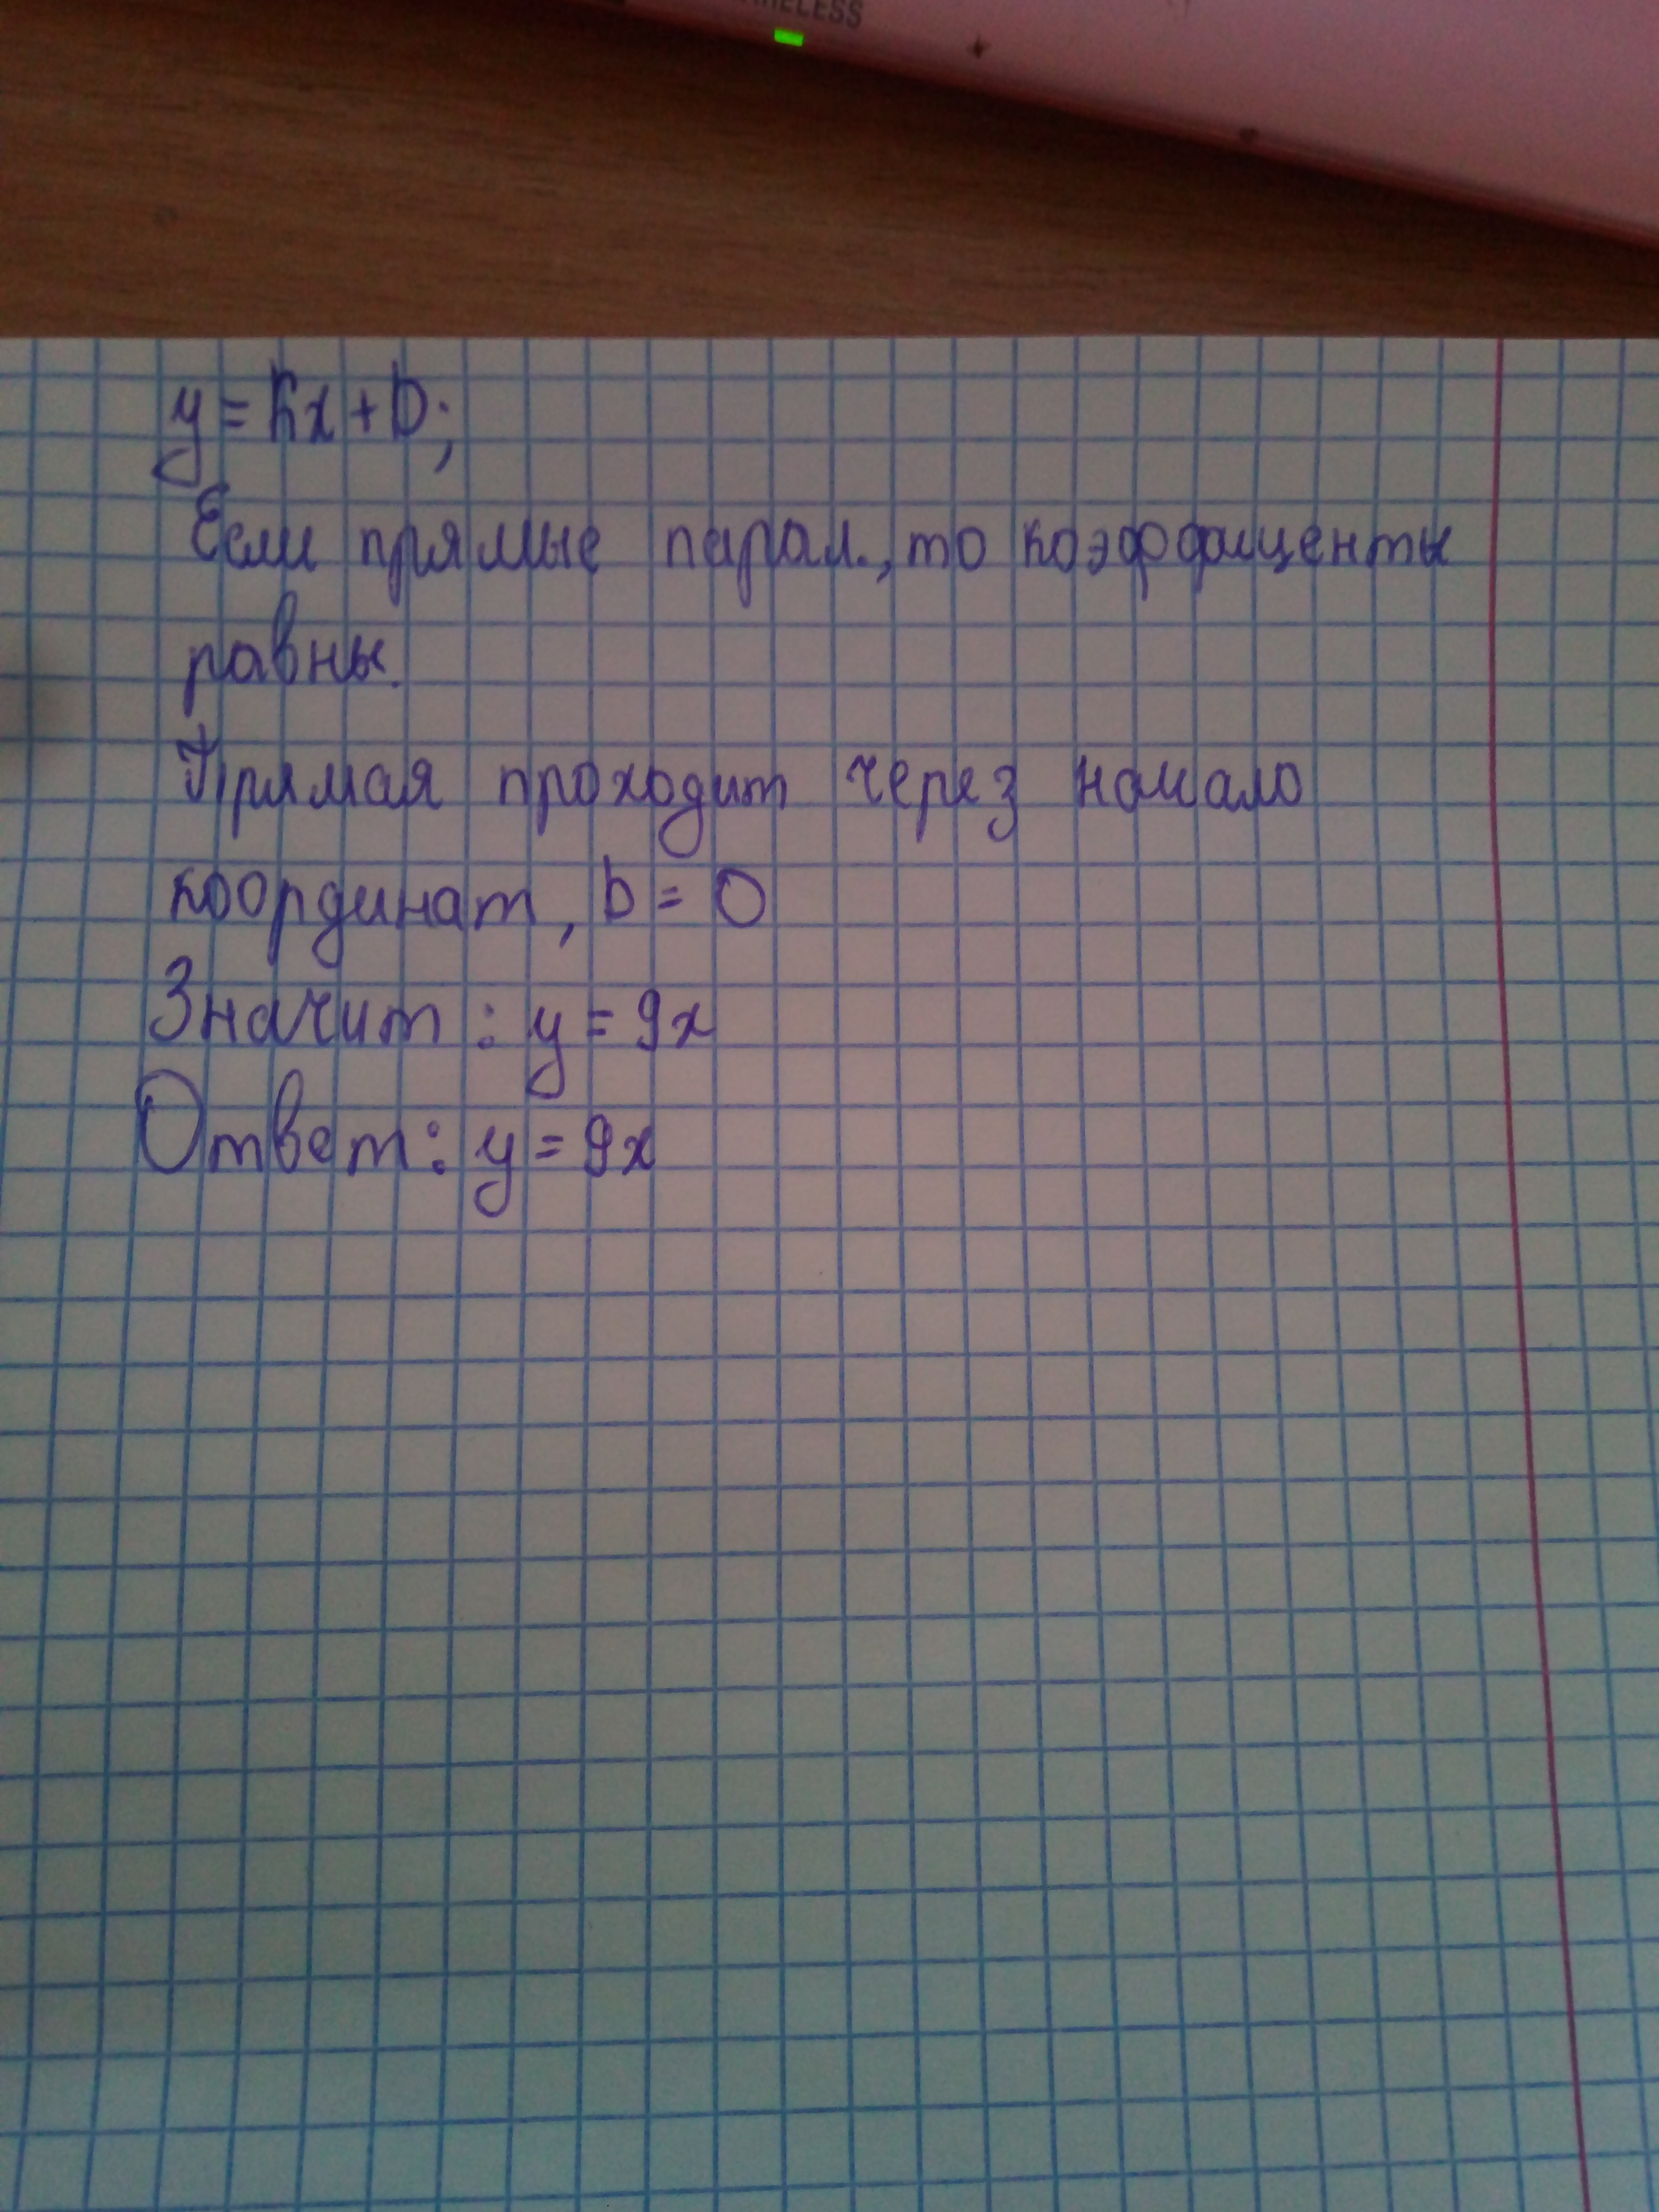 RELESS
y = kx + b;
Если прямые парал., то коэффиценты
равны.
Прямая проходит через начало
координат, b = 0
Значит: y = 9x
Ответ: y = 9x